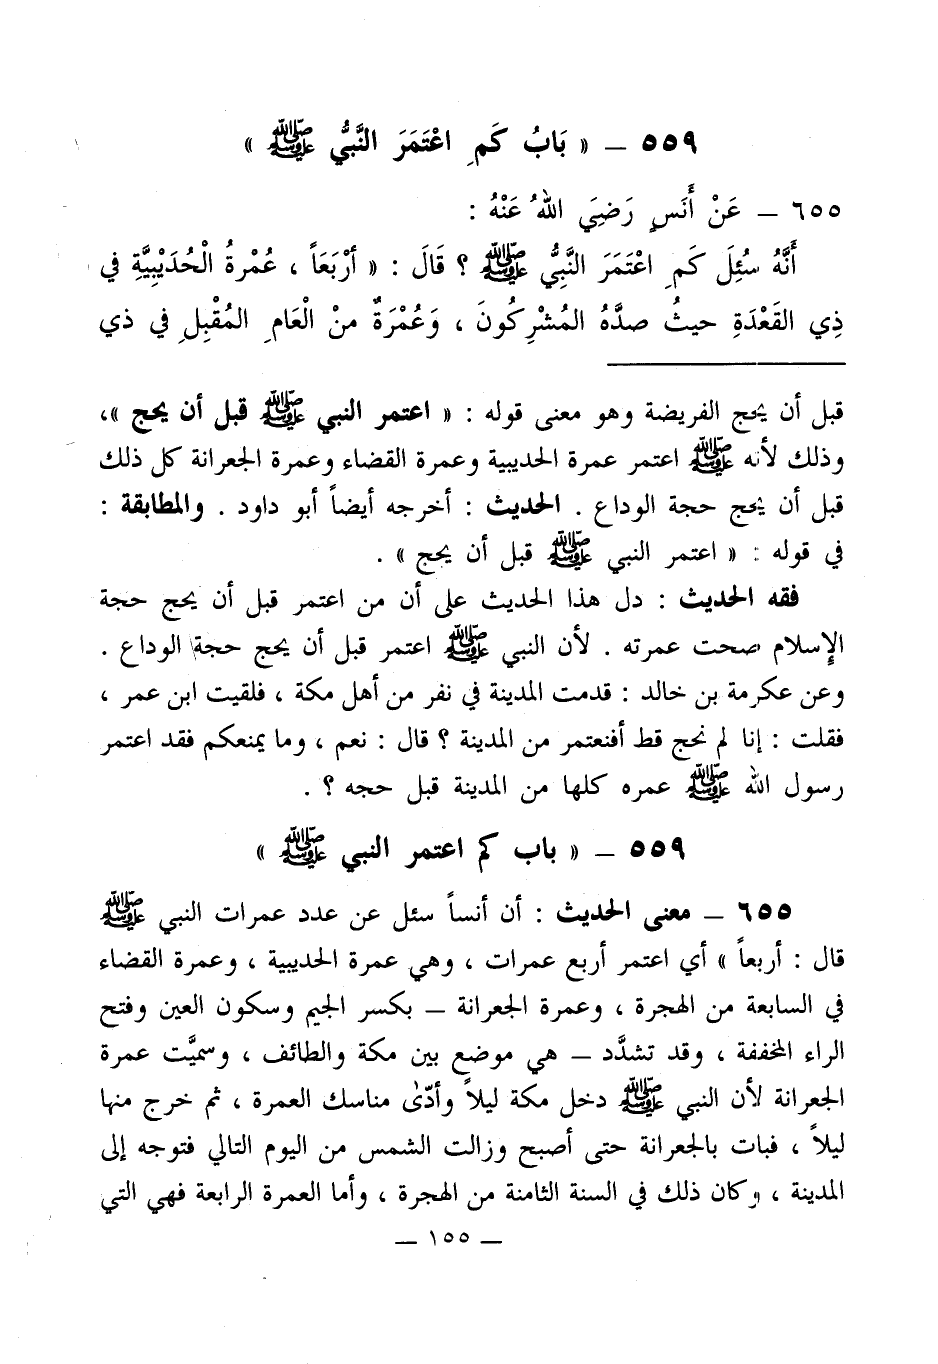 ٥٥٩ ــ « بَابُ كَمِ اعْتَمَرَ النَّبيُّ ﷺ »
٦٥٥ ــ عَنْ أَنَسٍ رَضِيَ اللهُ عَنْهُ :
أَنَّهُ سُئِلَ كَمِ اعْتَمَرَ النَّبِيُّ ﷺ ؟ قَالَ : « أرْبَعَاً ، عُمْرةُ الْحُدَيْبِيَّةِ في
ذِي القَعْدَةِ حيثُ صدَّهُ المُشْرِكُونَ ، وَعُمْرَةٌ منْ الْعَامِ المُقْبِلِ في ذي
قبل أن يحج الفريضة وهو معنى قوله : « اعتمر النبي ﷺ قبل أن يحج »،
وذلك لأنه ﷺ اعتمر عمرة الحديبية وعمرة القضاء وعمرة الجعرانة كل ذلك
قبل أن يحج حجة الوداع . الحديث : أخرجه أيضاً أبو داود . والمطابقة :
في قوله : « اعتمر النبي ﷺ قبل أن يحج » .
فقه الحديث : دل هذا الحديث على أن من اعتمر قبل أن يحج حجة
الإسلام صحت عمرته . لأن النبي ﷺ اعتمر قبل أن يحج حجة الوداع .
وعن عكرمة بن خالد : قدمت المدينة في نفر من أهل مكة ، فلقيت ابن عمر ،
فقلت : إنا لم نحج قط أفنعتمر من المدينة ؟ قال : نعم ، وما يمنعكم فقد اعتمر
رسول الله ﷺ عمره كلها من المدينة قبل حجه ؟ .
٥٥٩ ــ « باب كم اعتمر النبي ﷺ »
٦٥٥ ــ معنى الحديث : أن أنساً سئل عن عدد عمرات النبي ﷺ
قال : أربعاً » أي اعتمر أربع عمرات ، وهي عمرة الحديبية ، وعمرة القضاء
في السابعة من الهجرة ، وعمرة الجعرانة ــ بكسر الجيم وسكون العين وفتح
الراء المخففة ، وقد تشدَّد ــ هي موضع بين مكة والطائف ، وسميَّت عمرة
الجعرانة لأن النبي ﷺ دخل مكة ليلاً وأدّىٰ مناسك العمرة ، ثم خرج منها
ليلاً ، فبات بالجعرانة حتى أصبح وزالت الشمس من اليوم التالي فتوجه إلى
المدينة ، وكان ذلك في السنة الثامنة من الهجرة ، وأما العمرة الرابعة فهي التي
ــ ١٥٥ ــ